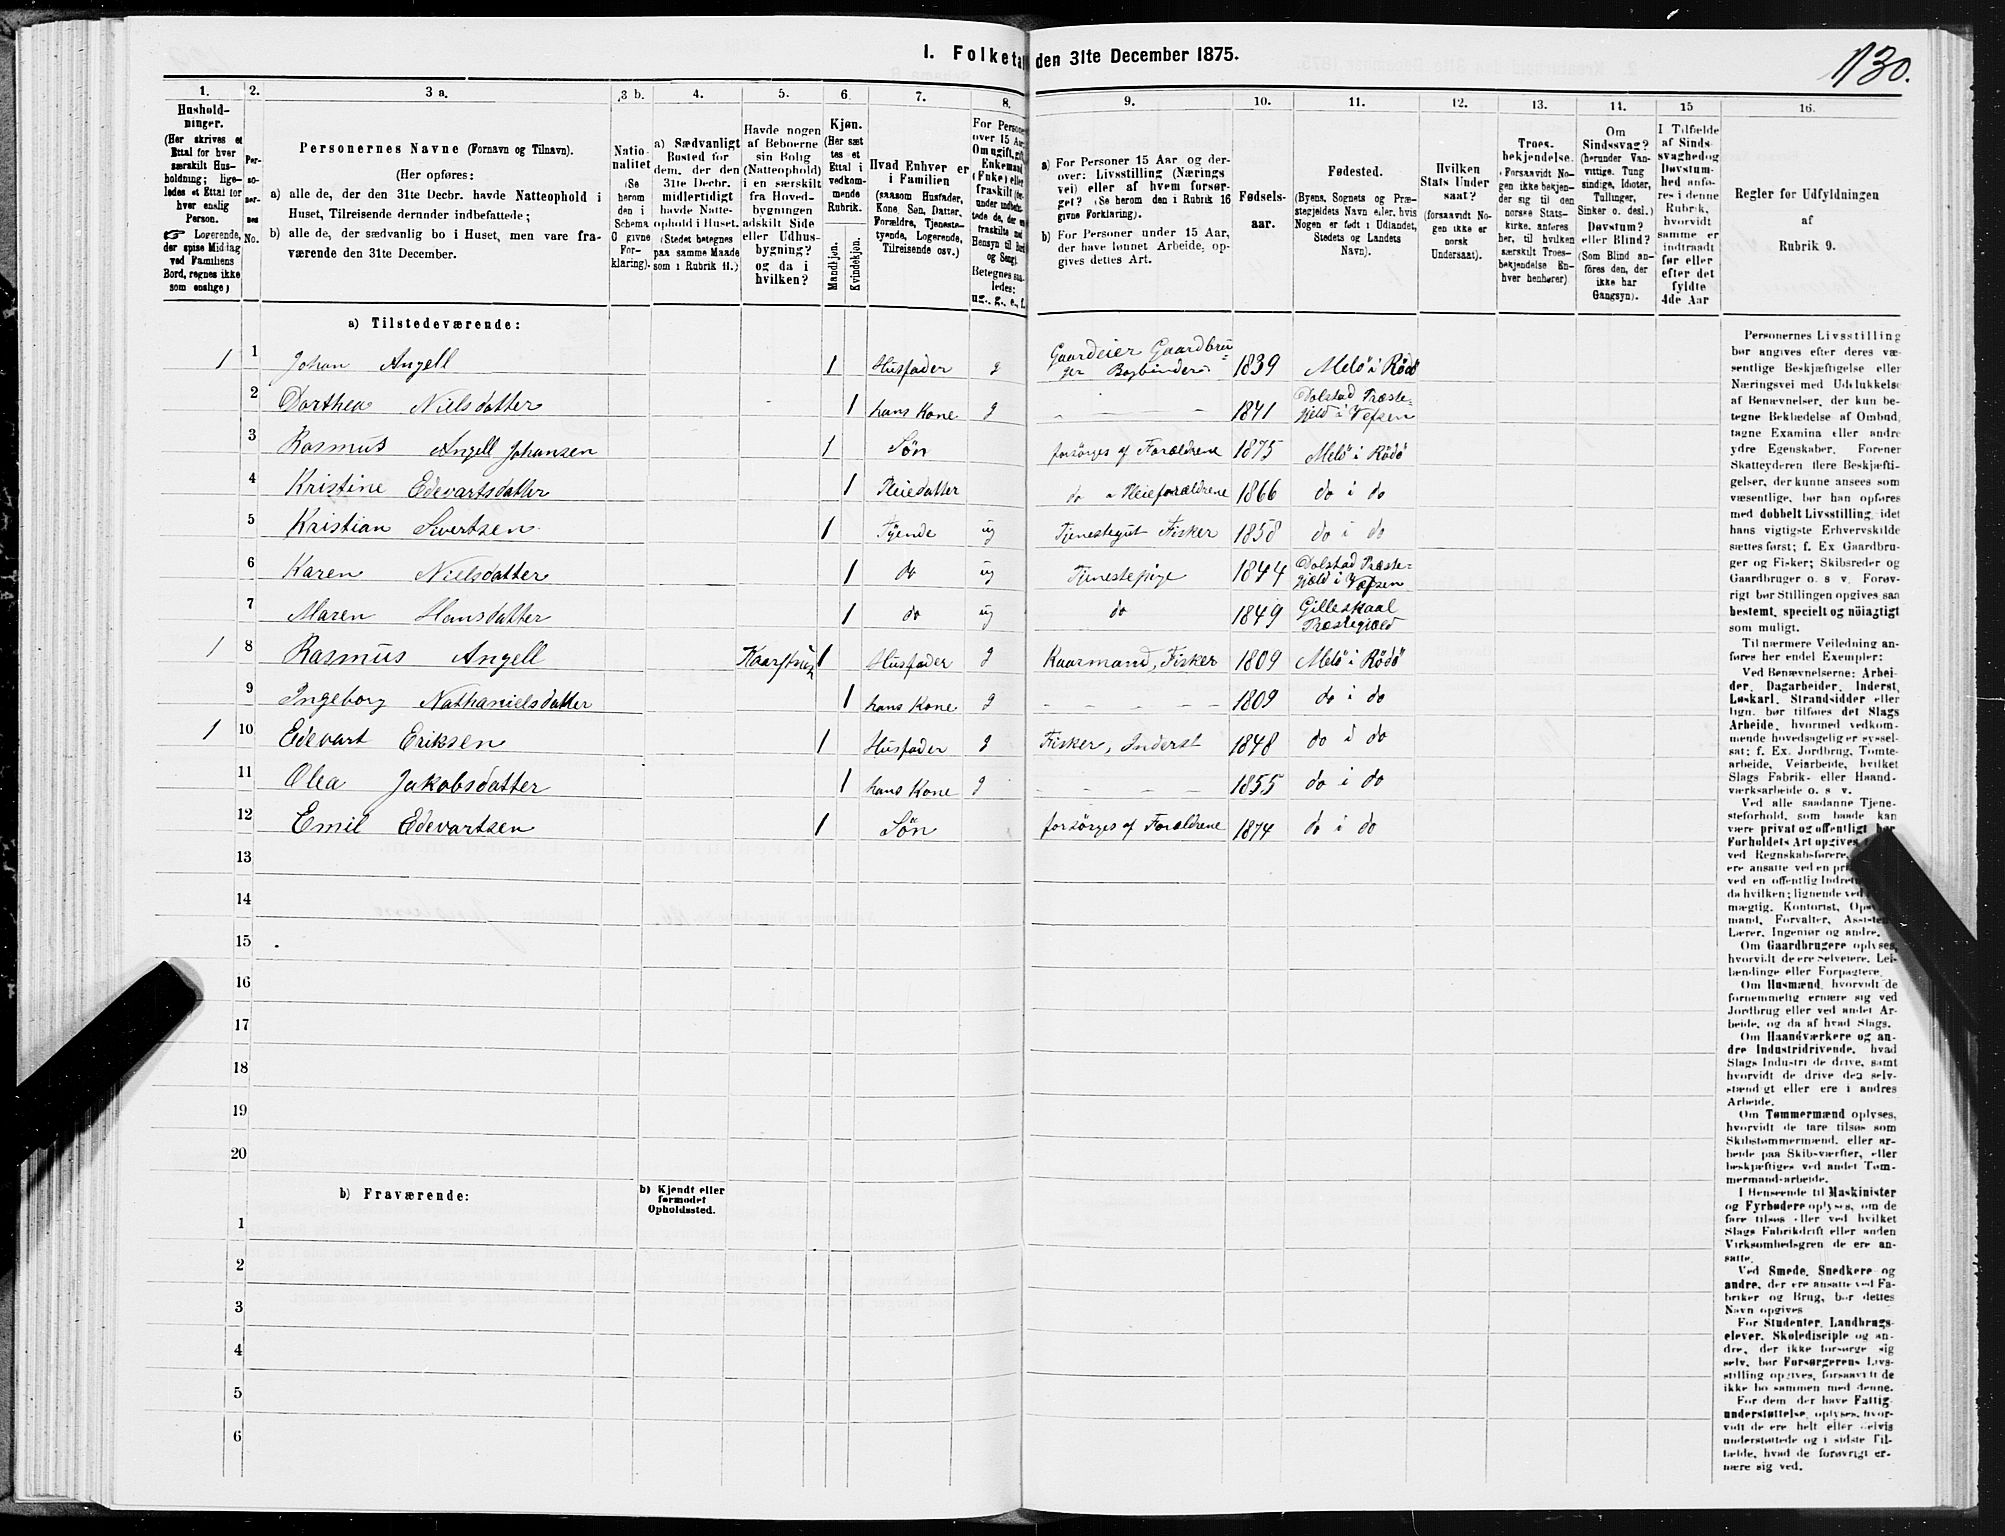 I. Folketa den 31te December 1875.
1130.
1.
2.
3 a.
3 b.
4.
5.
6.
7.
8.
9.
10.
11.
12.
13.
14.
15
16.
Hushold-
ninger.
(Her skrives et
Ettal for hver
særskilt Hus-
holdning; lige-
ledes et Ettal for
hver enslig
Person.
☞ Logerende,
der spise Middag
ved Familiens
Bord, regnes ikke
som enslige)
Per-
so-
ner-
nes
No.
Personernes Navne (Fornavn og Tilnavn).
(Her opføres:
a) alle de, der den 31te Decbr. havde Natteophold i
Huset, Tilreisende derunder indbefattede;
b) alle de, der sædvanlig bo i Huset, men vare fra-
værende den 31te December.
Natio-
nalitet
(Se
herom
den i
Schema
G givne
For-
klaring).
a) Sædvanligt
Bosted for
dem, der den
31te Decbr.
midlertidigt
havde Natte-
ophold i Huset.
(Stedet betegnes
paa samme Maade
som i Rubrik 11.)
Havde nogen
af Beboerne
sin Bolig
(Natteophold)
i en særskilt
fra Hoved-
bygningen
adskilt Side
eller Udhus-
bygning?
og da i
hvilken?
Kjøn.
(Her sæt
tes et
Ettal i
vedkom-
mende
Rubrik.
Mandkjøn.
Kvindekjøn.
Hvad Enhver er
i Familien
(saasom Husfader,
Kone, Søn, Datter,
Forældre, Tjeneste-
tyende, Logerende,
Tilreisende osv.)
For Persone
over 15 Aar
Om ugift, gift
Enkemand
(Enke) eller
fraskilt
Betegnes saa-
ledes:
ug., g., e., f.
a) For Personer 15 Aar og der-
over: Livsstilling (Nærings
vei) eller af hvem forsør-
get? (Se herom den i Rubrik 16
givne Forklaring).
b) For Personer under 15 Aar,
der have lønnet Arbeide, op-
gives dettes Art.
Fødsels-
aar.
Fødested.
(Byens, Sognets og Præ-
stegjeldets Navn eller, hvis
Nogen er født i Udlandet,
Stedets og Landets
Navn).
Hvilken
Stats Under
saat?
(forsaavidt No-
gen ikke er
norsk
Undersaat).
Troes-
bekjendelse.
(Forsaavidt No-
gen ikke bekjen-
der sig til den
norske Stats-
kirke, anføres
her, til hvilken
særskilt Troes-
bekjendelse En-
hver henhører)
Om
Sindssvag?
(herunder Van-
vittige, Tung
sindige, Idioter,
Tullinger,
Sinker o. desl.)
Døvstum?
eller Blind?
(Som Blind an-
føres den, der
ikke har
Gangsyn).
I Tilfælde
af Sinds-
svaghed og
Døvstum-
hed anfø-
res i denne
Rubrik,
hvorvidt
samme er
indtraadt
før eller
efter det
fyldte
4de Aar
Regler for Udfyldningen
af
Rubrik 9.
a) Tilstedeværende:
1 1 Johan Angell 1 Husfader g Gaardeier Gaardbru
ger Bogbinder 1839 Melö i Rödö
2 Dorthea Nielsdatter 1 hans Kone g 1841 Dolstad Præste-
gjeld i Vefsen
3 Rasmus Angell Johansen 1 Søn forsörges af Forældrene 1875 Melö i Rödö
4 Kristine Edevartsdatter 1 Pleiedatter do " Pleieforældrene 1866 do i do
5 Kristian Sivertsen 1 Tyende ug Tjenestegut Fisker 1858 do i do
6 Karen Nielsdatter 1 do ug Tjenestepige 1844 Dolstad Præste-
gjeld i Vefsen
7 Maren Hansdatter 1 do ug do 1849 Gilleskaal
Præstegjeld
1 8 Rasmus Angell 1 Husfader g Kaarmand, Fisker 1809 Melö i Rödö
9 Ingeborg Nathanielsdatter 1 hans Kone g 1809 do i do
1 10 Edevart Eriksen 1 Husfader g Fisker, Inderst 1848 do i do
11 Olea Jakobsdatter 1 hans Kone g 1855 do i do
12 Emil Edevartsen 1 Søn forsörges af Forældrene 1874 do i do
13
14
15
16
17
18
19
20
b) Fraværende:
b) Kjendt eller
formodet
Opholdssted.
1
2
3
4
5
6
Personernes Livsstilling
bør angives efter deres væ-
sentlige Beskjæftigelse eller
Næringsvei med Udelukkelse
af Benævnelser, der kun be-
tegne Beklædelse af Ombud,
tagne Examina eller andre
ydre Egenskaber. Forener
Skatteyderen flere Beskjæfti-
gelser, der kunne ansees som
væsentlige, bør han opføres
med dobbelt Livsstilling, idet
hans vigtigste Erhvervskilde
sættes først; f. Ex Gaardbru-
ger og Fisker; Skibsreder og
Gaardbruger o. s v. Forøv-
rigt bør Stillingen opgives saa
bestemt, specielt og nöiagtigt
som muligt.
Til nærmere Veiledning an-
føres her endel Exempler:
Ved Benævnelserne: Arbei-
der, Dagarbeider, Inderst,
Løskarl, Strandsidder eller
lign. bør tilføies det Slags
Arbeide, hvormed vedkom-
mende hovedsagelig er syssel-
sat; f. Ex. Jordbrug, Tomte-
arbeide, Veiarbeide, hvilket
Slags Fabrik- eller Haand-
værksarbeide o. s v.
Ved alle saadanne Tjene-
steforhold, som baade kan
være privat og offentligt bør
Forholdets Art opgives
ved Regnskabsførere,
ere ansatte ved en pri
ved en offentlig Indret
da hvilken; lignende ved
mægtig, Kontorist, Ops
mand, Forvalter, Assisten
Lærer, Ingeniør og andre.
Om Gaardbrugere oplyses,
hvorvidt de ere Selveiere, Lei-
lændinge eller Forpagtere.
Om Husmænd, hvorvidt de
fornemmelig ernære sig ved
Jordbrug eller ved andet Ar-
beide, og da af hvad Slags.
Om Haandværkere og an-
dre Industridrivende, hvad
Slags Industri de drive, samt
hvorvidt de drive den selv-
stændigt eller ere i andres
Arbeide.
Om Tømmermænd oplyses,
hvorvidt de fare tilsøs som
Skibstømmermænd, eller ar-
beide paa Skibsværfter, eller
beskjæftiges ved andet Tøm-
mermand-arbeide.
I Henseende til Maskinister
og Fyrbødere oplyses, om de
fare tilsøs eller ved hvilket
Slags Fabrikdrift eller anden
Virksomhedsgren de ere an-
satte.
Ved Smede, Snedkere og
andre, der ere ansatte ved Fa-
briker og Brug, bør dettes
Navn opgives
For Studenter, Landbrugs-
elever, Skoledisciple og an-
dre, der ikke forsørge sig
selv, bør Forsørgerens Livs-
stilling opgives, forsaavidt de
ikke bo sammen med denne.
For dem, der have Fattig-
understøttelse, oplyses, hvor-
vidt de ere helt eller delvis
understøttede og i sidste Til-
fælde, hvad de forøvrigt er-
nære sig ved.